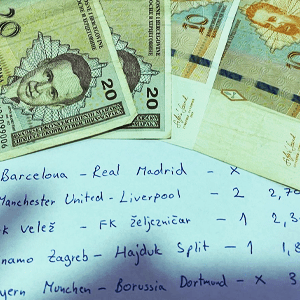 20
20
10
10
Barcelona - Real Madrid - X
Manchester United - Liverpool - 2 2,70
k Velež - FK željezničar - 1 2,3
namo Zagreb - Hajduk Split - 1 1,8
yern München - Borussia Dortmund - X 3